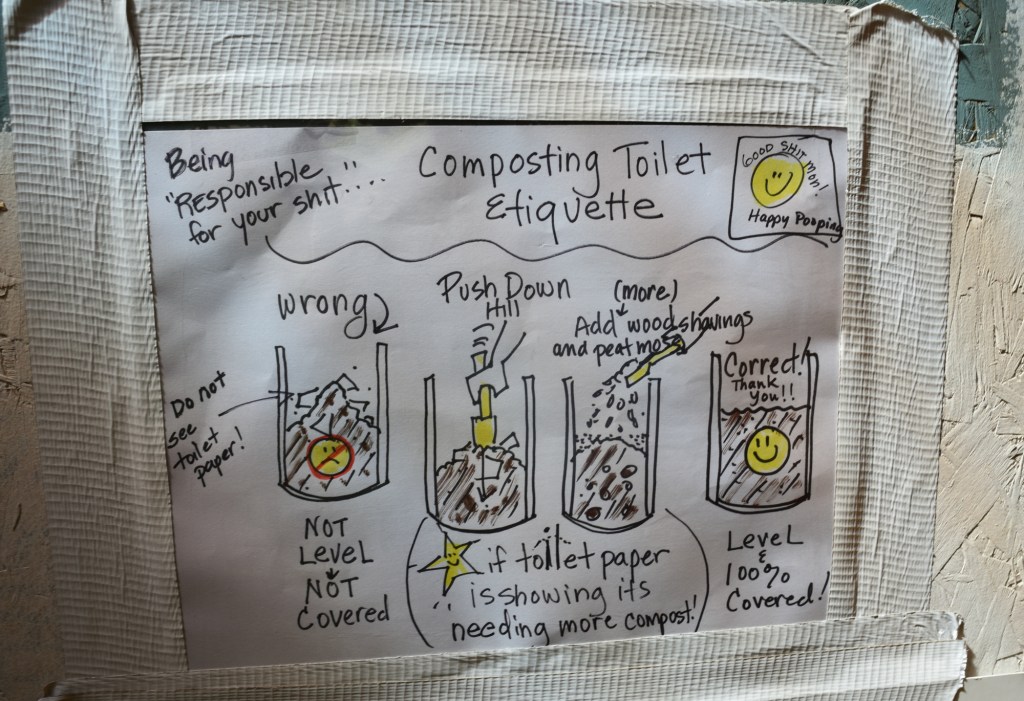 Being
"Responsible
for your shit"....
Composting Toilet
Etiquette
GOOD SHIT Mon!
Happy Pooping
Wrong
Do not
see
toilet
paper!
NOT
LEVEL
NOT
Covered
Push Down
Hill
(more)
Add wood shavings
and peat moss
if toilet paper
is showing its
needing more compost!
Correct!
Thank
you!!
LEVEL
&
100%
Covered!